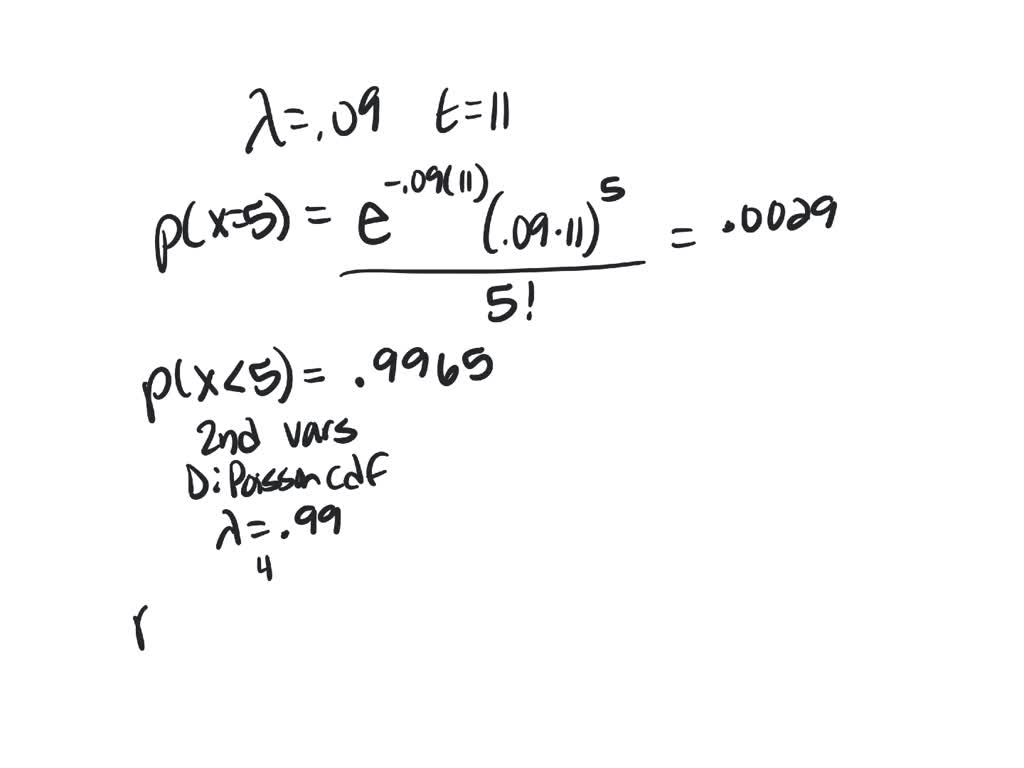 λ=.09 t=11
p(x=5) = e^-.09(11) (.09·11)^5 = .0029
5!
p(x<5) = .9965
2nd vars
D: Poisson cdf
λ = .99
4
r